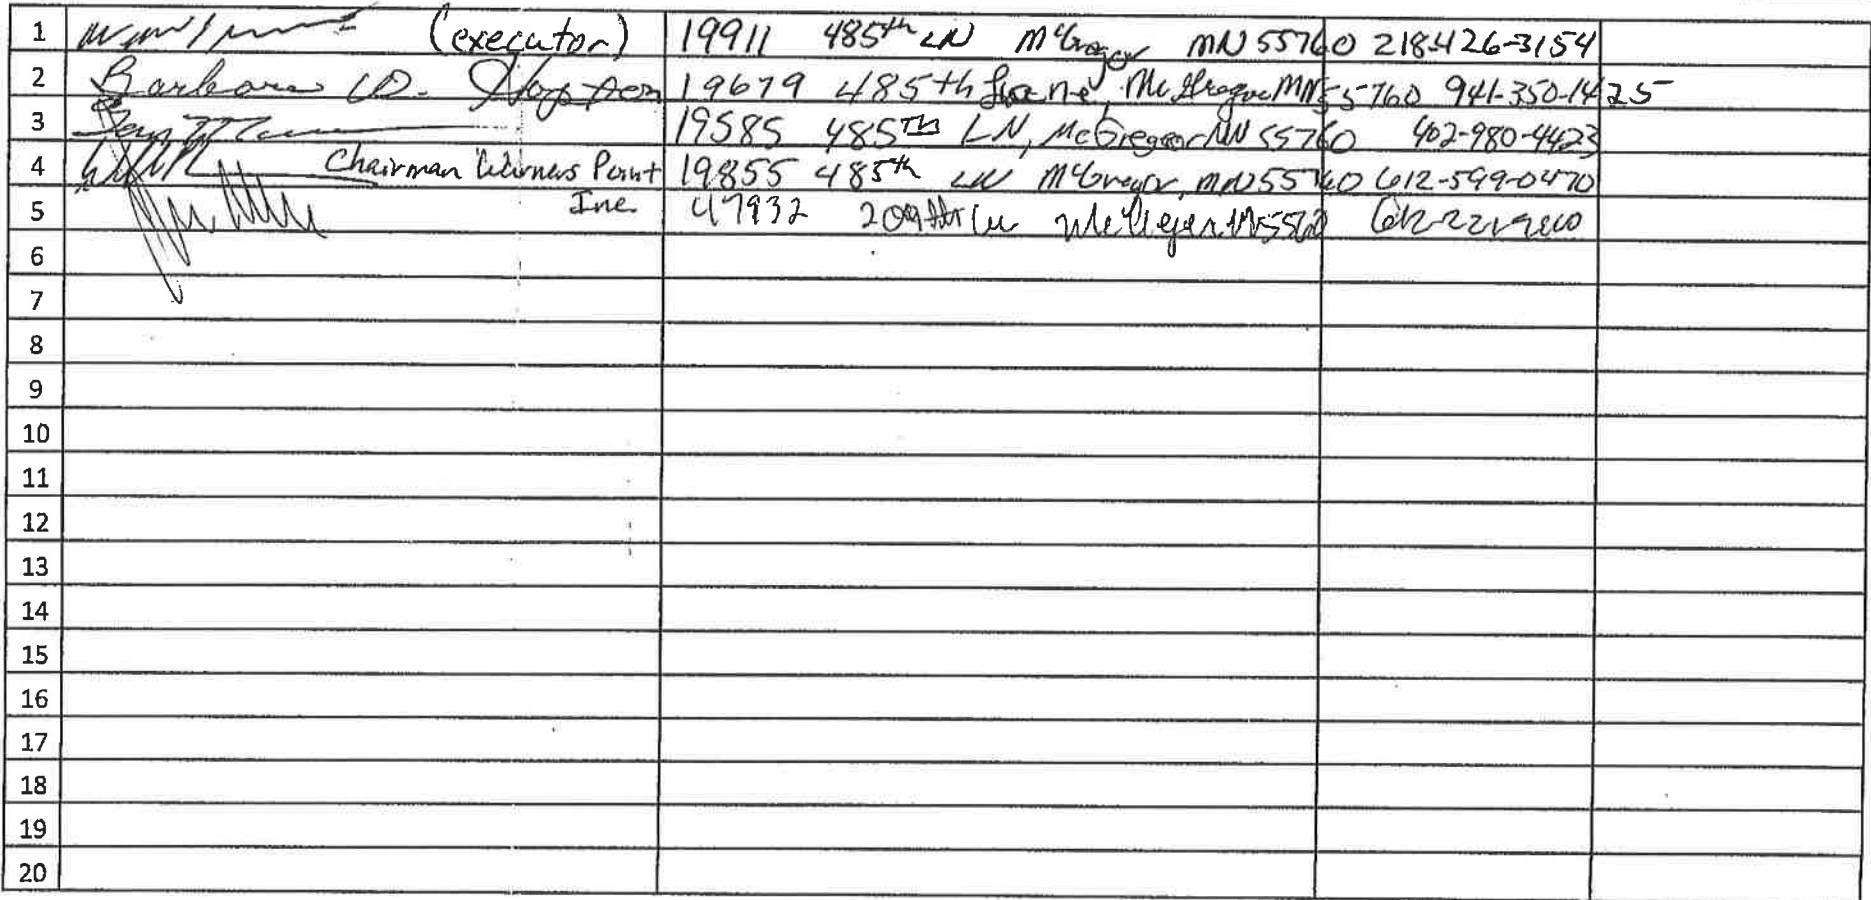 1 (executor) 19911 485th LN McGregor MN 55760 218-426-3154
2 Barbara D. 19679 485th Lane, McGregor MN 55760 941-350-1425
3 19585 485TH LN, McGregor MN 55760 402-980-4423
4 Chairman Point 19855 485th LN McGregor, MN 55760 612-599-0470
5 Inc. 47932 209th
6
7
8
9
10
11
12
13
14
15
16
17
18
19
20